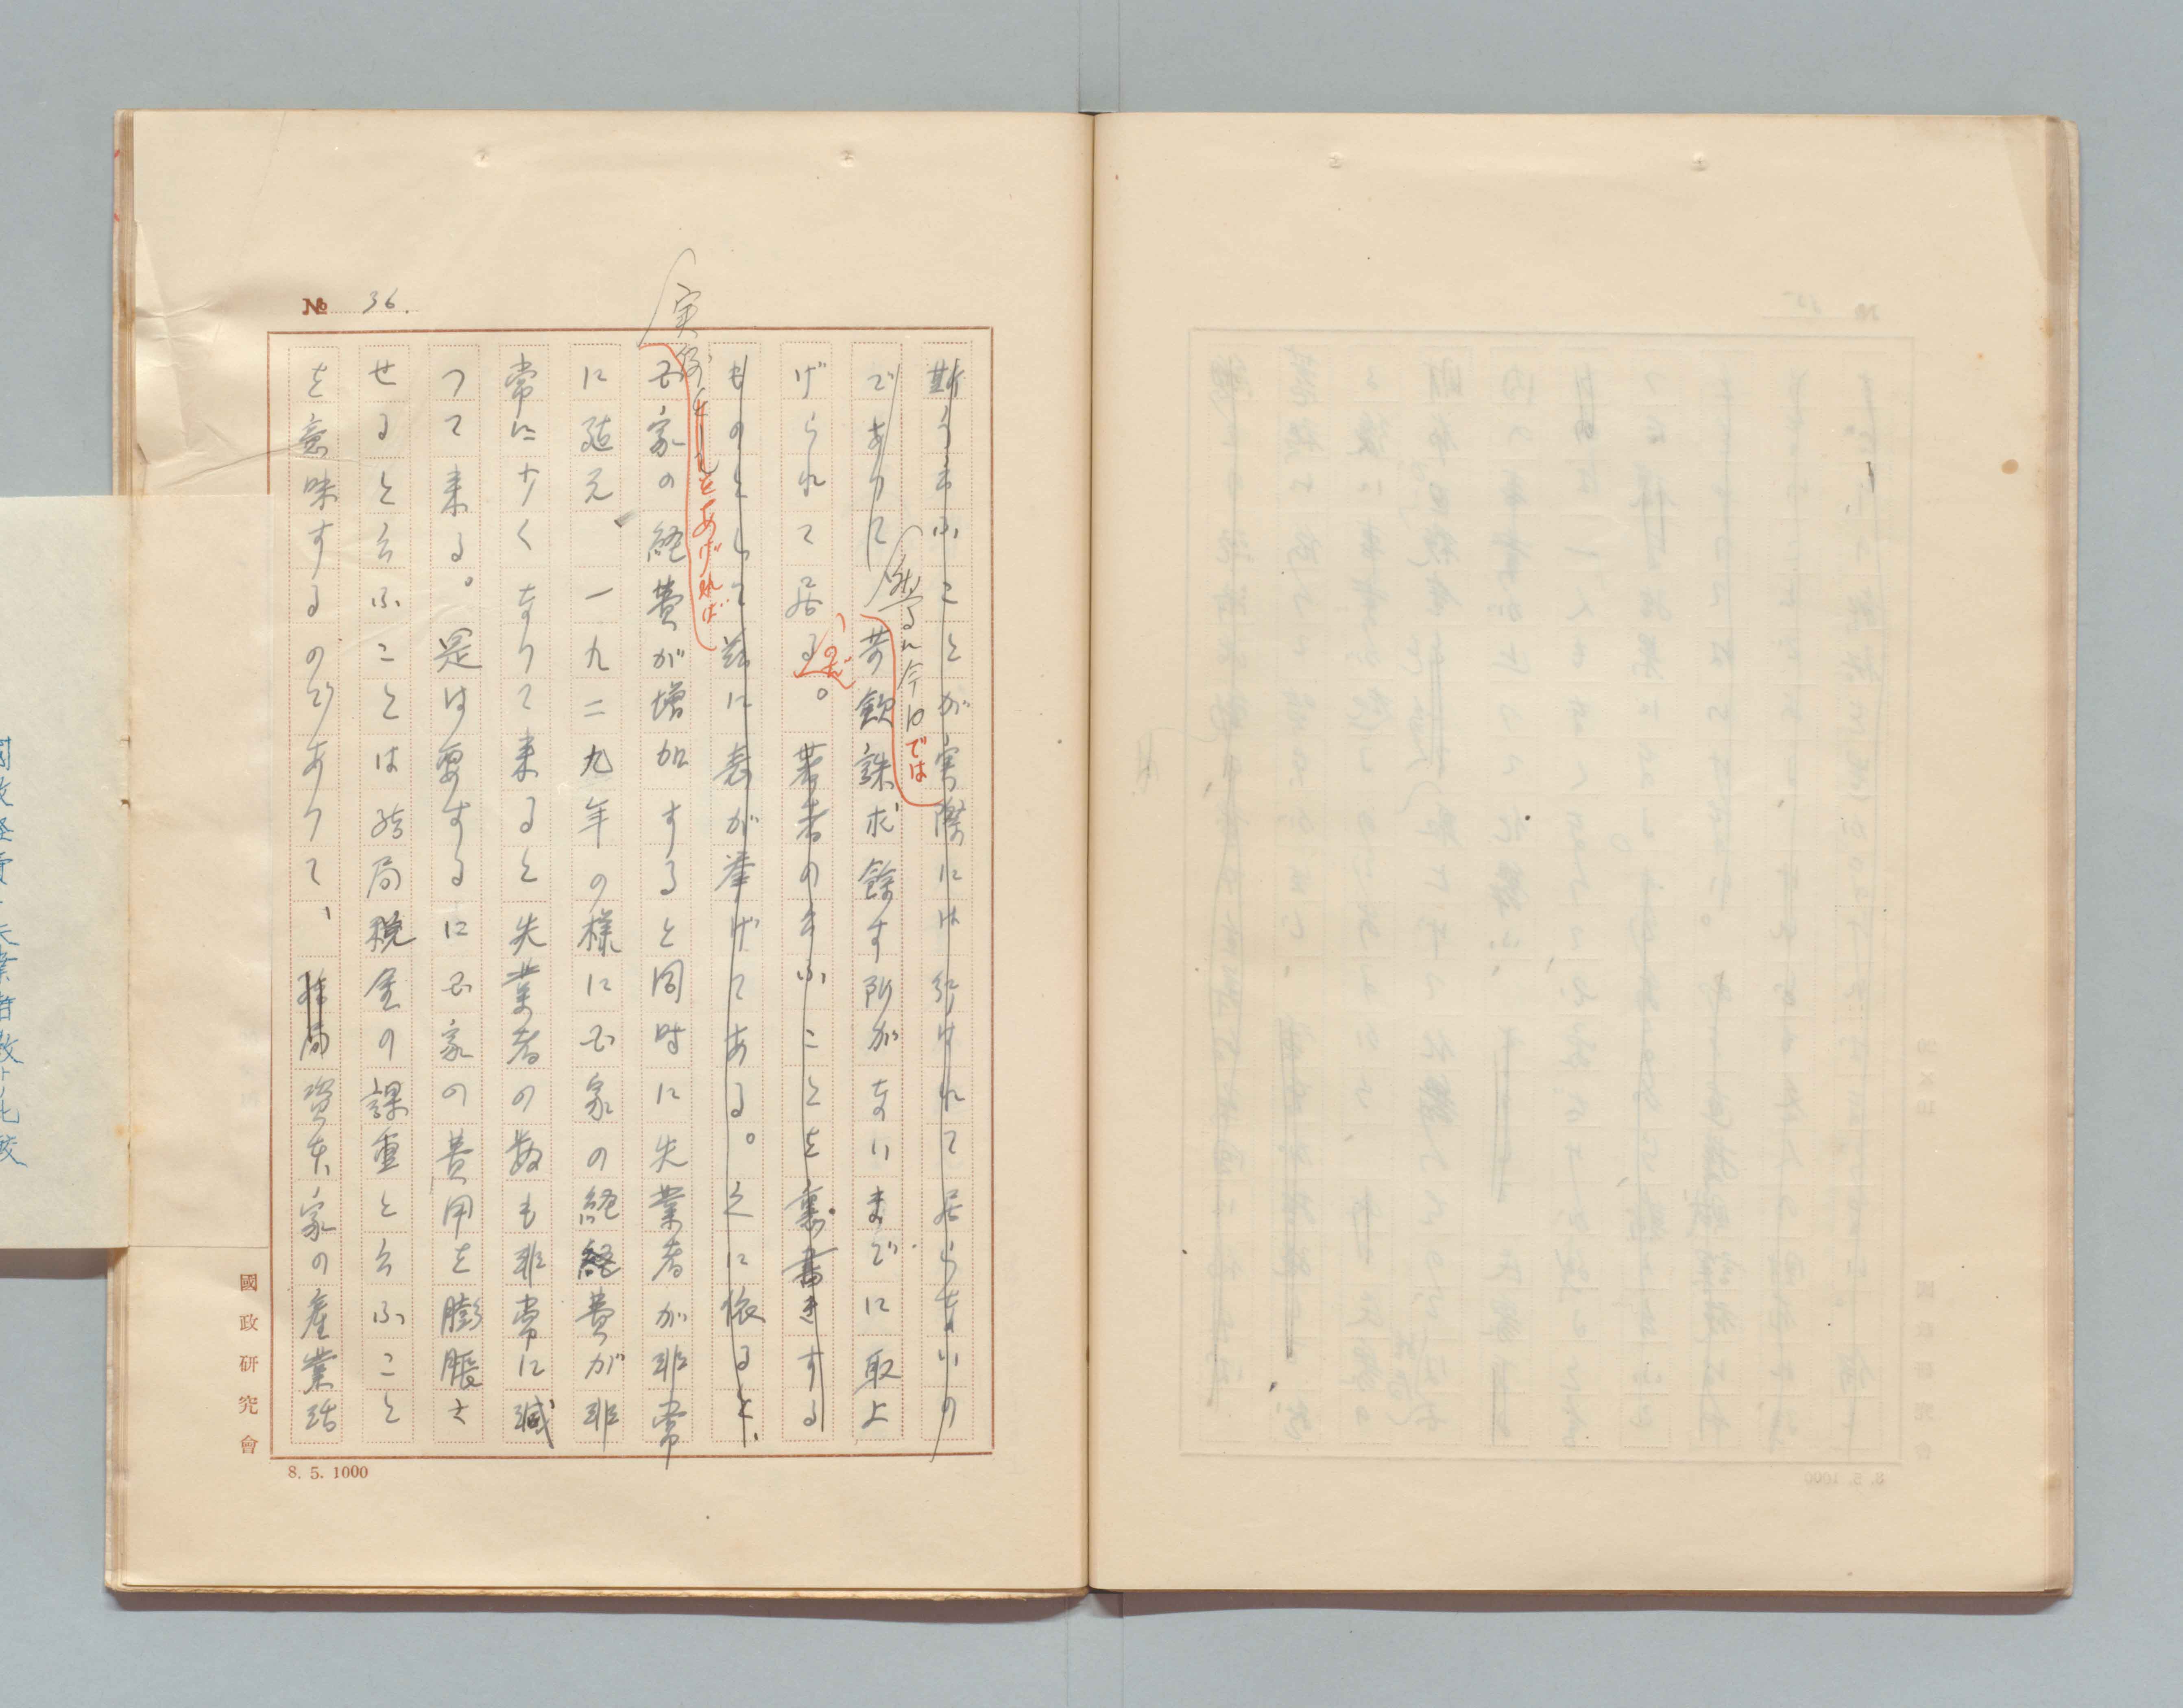 № 36.
斯う云ふことが実際には行はれて居らないの
でありて
然るに今日では
苛斂誅求餘す所がないまでに取上
げられて居る。著者の云ふことを裏書きする
のだ
ものとして茲に表が挙げてある。之に依ると、
実例としてをあげれば
国家の経費が増加すると同時に失業者が非常
に殖え 一九二九年の様に国家の経経費が非
常に少くなりて来ると失業者の数も非常に減
つて来る。是は要するに国家の費用を膨脹さ
せると云ふことは結局税金の課重と云ふこと
を意味するのでありて、結局資本家の産業活
國政研究會
8. 5. 1000